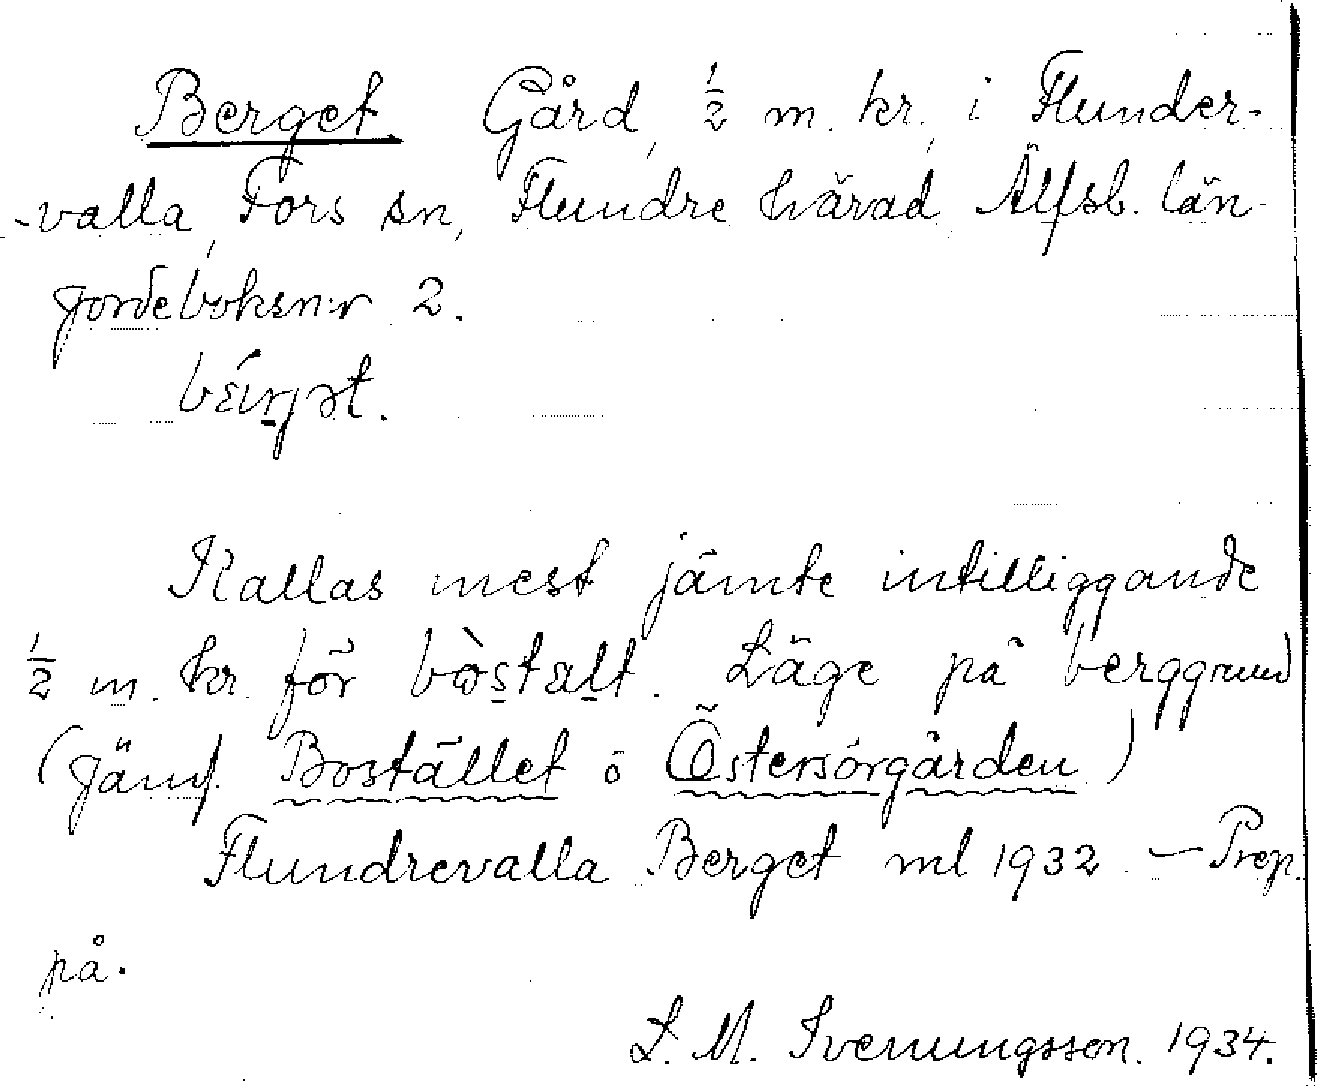 Berget Gård, ½ m. kr., i Flunder-
-valla, Fors sn, Flundre härad Älfsb. län
Jordeboksn:r 2.
Kallas mest jämte intilliggande
½ m. kr. för bòstalt. Läge på berggrund
(Jämf. Bostället o Östersörgården)
Flundrevalla Berget ml 1932 — Prep.
på.
L. M. Svenungsson. 1934.